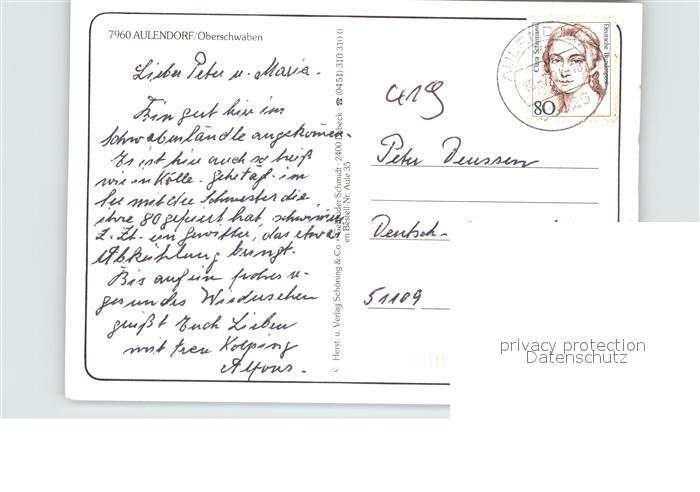 7960 AULENDORF/Oberschwaben
Lieber Peter u. Maria.
Bin gut hier im
Schwabenländle angekommen.
Es ist hier auch so heiß
wie in Kölle.
mit der Schwester die
ihre 80 gefeiert hat,
z. Zt. ein Gewitter, das etwas
Abkühlung bringt.
Bis auf ein frohes u.
gesundes Wiedersehen
grüßt Euch Lieben
mit treu Kolping
Alfons.
© Herst. u. Verlag Schöning & Co + Gebrüder Schmidt · 2400 Lübeck · ☎ (0451) 310 310 0
en Bestell-Nr. Aule 35
419
Clara Schumann
Deutsche Bundespost
80
AULENDORF
Peter Deussen
Deutsch-
51109
privacy protection
Datenschutz